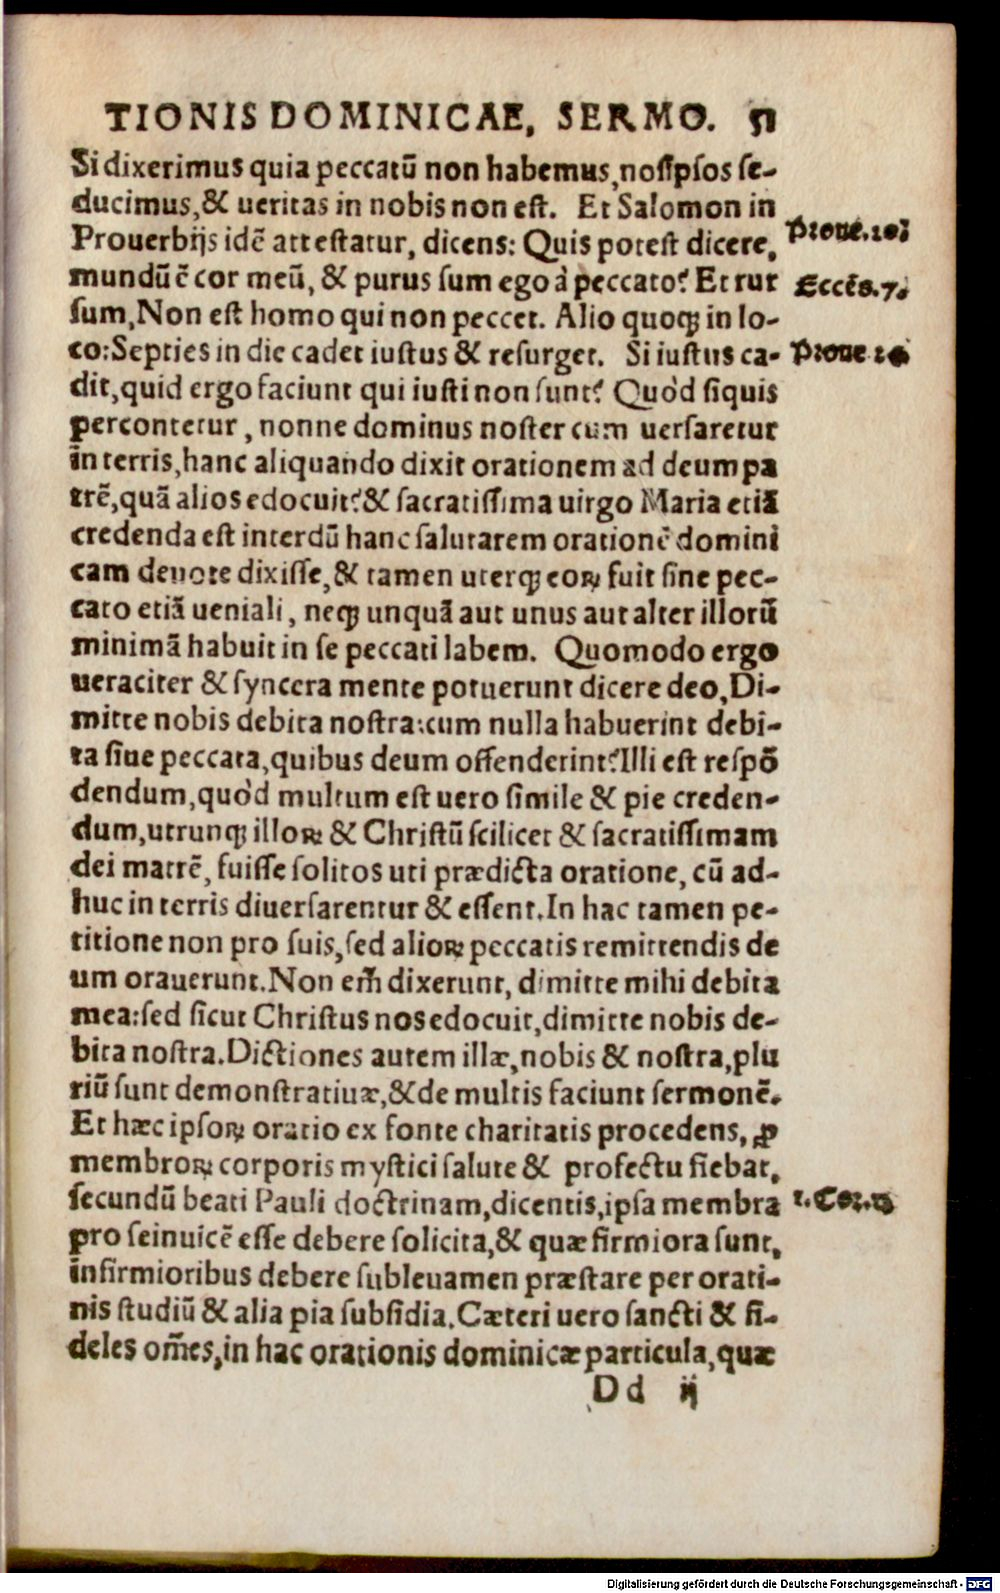 TIONIS DOMINICAE, SERMO.
Si dixerimus quia peccatū non habemus, nosipsos se-
ducimus, & ueritas in nobis non est. Et Salomon in
Prouerbijs idē attestatur, dicens: Quis potest dicere,
mundū ē cor meū, & purus sum ego à peccato? Et rur
sum, Non est homo qui non peccet. Alio quoq; in lo-
co: Septies in die cadet iustus & resurget. Si iustus ca-
dit, quid ergo faciunt qui iusti non sunt? Quòd siquis
percontetur, nonne dominus noster cum uersaretur
in terris, hanc aliquando dixit orationem ad deum pa
trē, quā alios edocuit? & sacratissima uirgo Maria etiā
credenda est interdū hanc salutarem orationē domini
cam deuote dixisse, & tamen uterq; eoꝝ fuit sine pec-
cato etiā ueniali, neq; unquā aut unus aut alter illorū
minimā habuit in se peccati labem. Quomodo ergo
ueraciter & syncera mente potuerunt dicere deo, Di-
mitte nobis debita nostra: cum nulla habuerint debi-
ta siue peccata, quibus deum offenderint? Illi est respō
dendum, quòd multum est uero simile & pie creden-
dum, utrunq; illoꝝ & Christū scilicet & sacratissimam
dei matrē, fuisse solitos uti prædicta oratione, cū ad-
huc in terris diuersarentur & essent. In hac tamen pe-
titione non pro suis, sed alioꝝ peccatis remittendis de
um orauerunt. Non em̄ dixerunt, dimitte mihi debita
mea: sed sicut Christus nos edocuit, dimitte nobis de-
bita nostra. Dictiones autem illæ, nobis & nostra, plu
riū sunt demonstratiuæ, & de multis faciunt sermonē.
Et hæc ipsoꝝ oratio ex fonte charitatis procedens, ꝓ
membroꝝ corporis mystici salute & profectu fiebat,
secundū beati Pauli doctrinam, dicentis, ipsa membra
pro seinuicē esse debere solicita, & quæ firmiora sunt,
infirmioribus debere subleuamen præstare per orati-
nis studiū & alia pia subsidia. Cæteri uero sancti & fi-
deles om̄es, in hac orationis dominicæ particula, quæ
Dd ij
Proue. 20.
Eccēs. 7.
Proue 24
1. Cor. 12
Digitalisierung gefördert durch die Deutsche Forschungsgemeinschaft - DFG